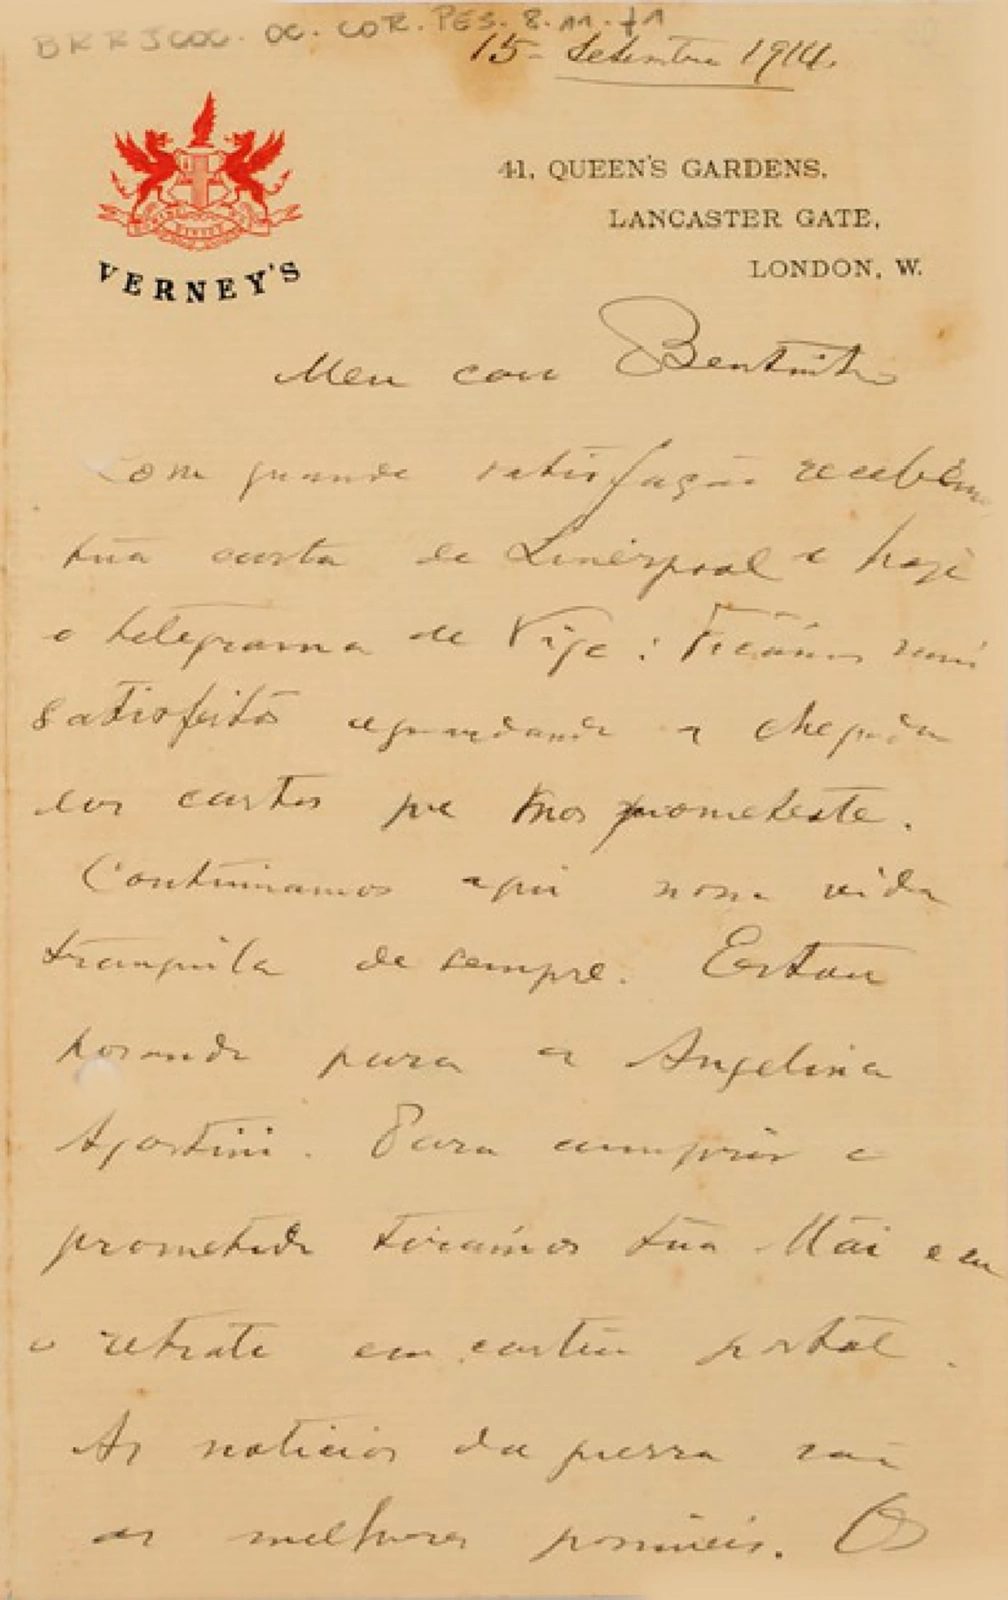 BR RJCOC. OC. COR. PES. 8. 11. f1
15 - Setembro 1914.
VERNEY'S
41, QUEEN'S GARDENS,
LANCASTER GATE,
LONDON, W.
Meu caro Bentinho
Com grande satisfação recebemos
tua carta de Liverpool e hoje
o telegrama de Vigo: Ficámos
satisfeitos aguardando a chegada
das cartas que nos prometeste.
Continuamos aqui nossa vida
tranquila de sempre. Estou
posando para a Angelina
Agostini. Para cumprir o
prometido tirámos tua Mãi e eu
o retrato em cartão postal.
As noticias da guerra são
as melhores possiveis. O